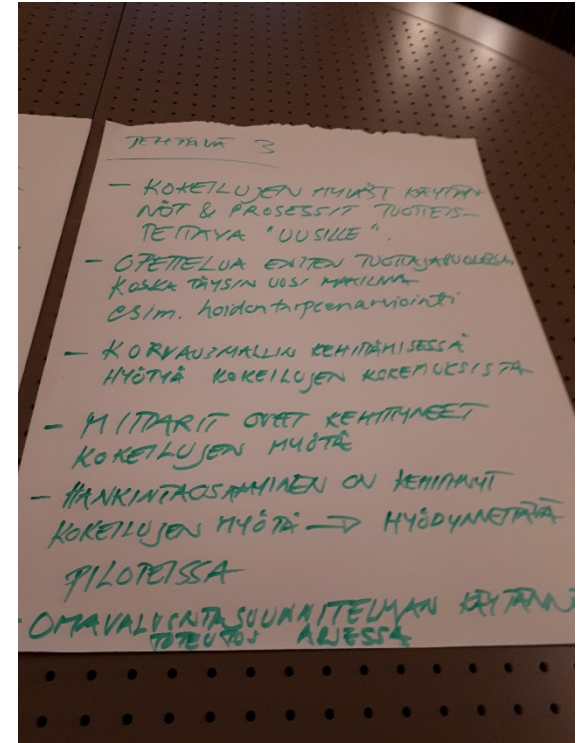 TEHTÄVÄ 3
- KOKEILUJEN HYVÄT KÄYTÄN-
NÖT & PROSESSIT TUOTTEIS-
TETTAVA "UUSILLE".
- OPETTELUA ENITEN TUOTTAJAPUOLELLA
KOSKA TÄYSIN UUSI MAAILMA
esim. hoidon tarpeenarviointi
- KORVAUSMALLIN KEHITTÄMISESSÄ
HYÖTYÄ KOKEILUJEN KOKEMUKSISTA
- MITTARIT OVAT KEHITTYNEET
KOKEILUJEN MYÖTÄ
- HANKINTAOSAAMINEN ON KEHITTYNYT
KOKEILUJEN MYÖTÄ → HYÖDYNNETTÄVÄ
PILOTEISSA
- OMAVALVONTASUUNNITELMAN KÄYTÄNN
TOTEUTUS ARJESSA